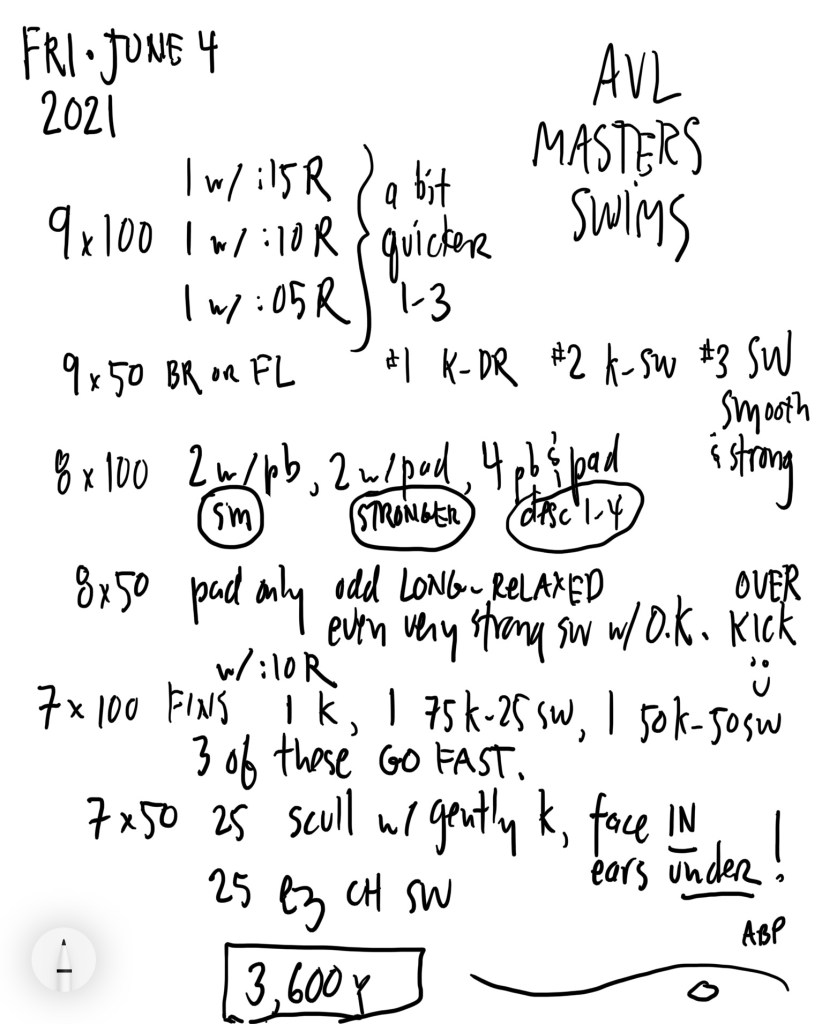 FRI. JUNE 4
2021
AVL
MASTERS
SWIMS
9x100 1 w/ :15 R
1 w/ :10 R
1 w/ :05 R
a bit
quicker
1-3
9x50 BR or FL #1 K-DR #2 k-sw #3 SW
smooth
& strong
8x100 2 w/pb, 2 w/pad, 4 pb & pad
sm STRONGER desc 1-4
8x50 pad only odd LONG-RELAXED
even very strong sw w/ O.K. OVER
KICK
w/ :10 R
7x100 FINS 1 k, 1 75k-25 sw, 1 50k-50sw
3 of these GO FAST.
7x50 25 scull w/ gently k, face IN
ears under!
25 ez CH SW
ABP
3,600 y